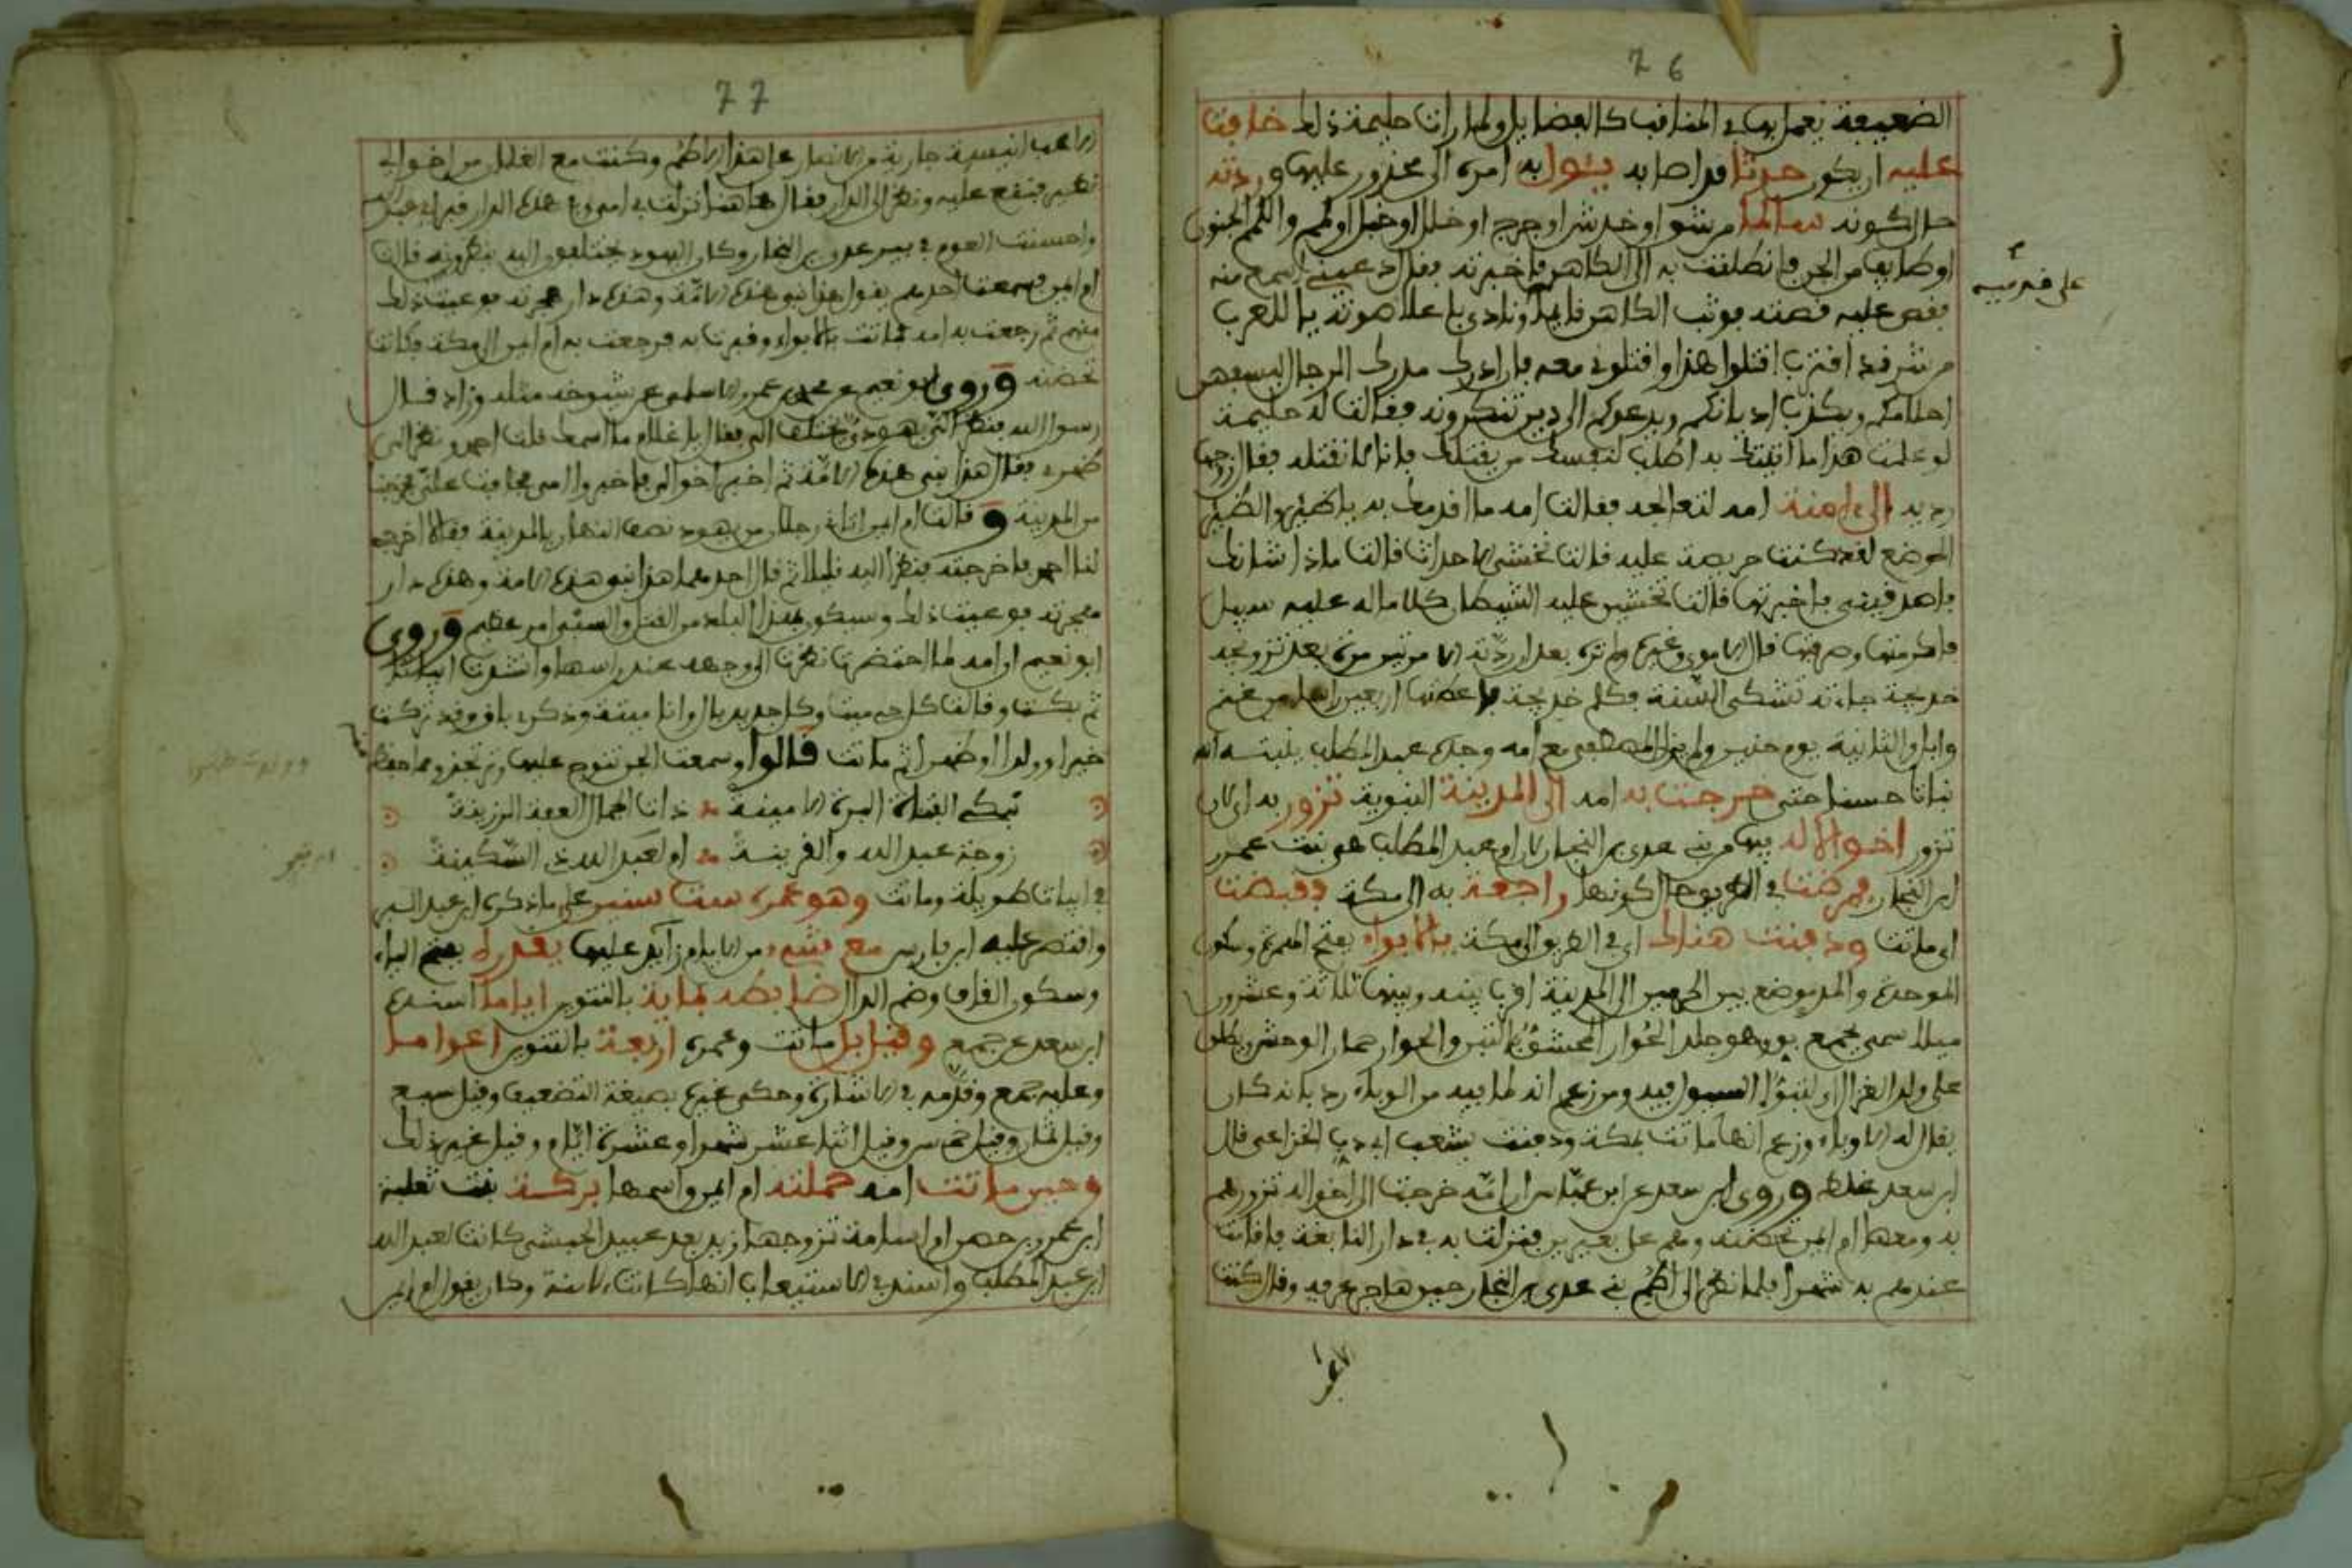 76
الضعيفة يعمل بها في المناقب كالفضايل ولما رات حليمة ذلك خافت
عليه ان يكون حدثا قد اصابه يئول به امره الى محذور عليها وردته
حال كونه سالما من شوا او خدش او جرح او خلل او خبل او لمم واللمم الجنون
او طايف من الجن فانطلقت به الى الكاهن فاخبرته فقال دعيني اسمع منه
فقص عليه قصته فوثب الكاهن قايما ونادى باعلا صوته يا للعرب
من شر قد اقترب اقتلوا هذا واقتلوني معه فان ادرك مدرك الرجال ليسفهن
احلامكم ويكذب اديانكم ويدعوكم الى دين تنكرونه فقالت له حليمة
لو علمت هذا ما اتيتك به اطلب لنفسك من يقتلك فانا لا نقتله فقال زوجها
رديه الى امنة امه لتعالجه فقالت امه ما اقدمك به يا ظئر والظئر
المرضع لقد كنت حريصة عليه قالت نخشى الاحداث قالت ماذا شانك
فاصدقيني فاخبرتها قالت تخشين عليه الشيطان كلا ماله عليه سبيل
فاكرمتها وصرفتها قال الاموي وغيره ولم تره بعد ان ردته الا مرتين مرة بعد تزوجه
خديجة جاءته تشكى السنة فكلم خديجة فاعطتها اربعين راسا من غنم
وابل والثانية يوم حنين ولم يزل المصطفى مع امه وجده عبد المطلب ينبته الله
نباتا حسنا حتى خرجت به امه الى المدينة النبوية تزور به اي لان
تزور اخوالا له بها من بني عدي بن النجار لان ام عبد المطلب هي بنت عمرو
ابن النجار فمرضت في الطريق حال كونها راجعة به الى مكة فقبضت
اي ماتت ودفنت هناك اي في الطريق الى مكة بالابواء بفتح الهمزة وسكون
الموحدة والمد موضع بين الحرمين الى المدينة اقرب بينه وبينها ثلاثة وعشرون
ميلا سمي بجمع بو وهو جلد الحوار المحشو بالتبن والحوار حمار الوحش يطلق
على ولد الغزال او لتبوء السيول فيه ومن زعم انه لما فيه من الوباء رد بانه كان
يقال له الاوباء وزعم انها ماتت بمكة ودفنت بشعب ابي دب الخزاعي قال
ابن سعد غلط وروى ابن سعد عن ابن عباس ان امه خرجت الى اخواله تزورهم
به ومعها ام ايمن تحضنه وهم على بعيرين فنزلت به في دار النابغة فاقامت
عندهم به شهرا فلما نظر الى اطم بني عدي بن النجار حين هاجر عرفه وقال كنت
77
الاعب انيسة جارية من الانصار على هذا الاطم وكنت مع الغلمان من اخوالي
نطير فيقع عليه ونظر الى الدار فقال هاهنا نزلت بي امي وفي هذه الدار قبر ابي عبد الله
واحسنت العوم في بير عدي بن النجار وكان اليهود يختلفون اليه ينظرونه قالت
ام ايمن فسمعت احدهم يقول هذا نبي هذه الامة وهذه دار هجرته فوعيت ذلك
منهم ثم رجعت به امه فماتت بالابواء وقبرت به فرجعت به ام ايمن الى مكة فكانت
تحضنه وروى ابو نعيم عن محمد بن عمر الاسلمي عن شيوخه مثله وزاد قال
رسول الله فنظر الي يهودي يختلف الي فقال يا غلام ما اسمك قلت احمد ونظر الى
ظهري فقال هذا نبي هذه الامة ثم اخبر اخوالي فاخبروا امي فخافت علي فخرجنا
من المدينة وقالت ام ايمن اتاني رجلان من يهود نصف النهار بالمدينة فقالا اخرجي
لنا احمد فاخرجته فنظرا اليه قليلا ثم قال احدهما هذا نبي هذه الامة وهذه دار
مهجرته فوعيت ذلك وسيكون بهذا البلد من القتل والسبي امر عظيم وروى
ابو نعيم ان امه لما احتضرت نظرت الى وجهه عند راسها وانشدت ابياتا
ثم بكت وقالت كل حي ميت وكل جديد بال وانا ميتة وذكري باق وقد تركت
خيرا وولدت طهرا ثم ماتت قالوا وسمعت الجن تنوح عليها وترثي فمما حفظ
تبكي الفتاة البرة الامينة ذات الجمال العفة الرزينة
زوجة عبد الله والقرينة ام لعبد الله ذي السكينة
في ابيات طويلة وماتت وهو عمره ست سنين على ما ذكره ابن عبد البر
واقتصر عليه ابن فارس مع شيء من الايام زايد عليها يقدره بفتح الياء
وسكون القاف وضم الدال ضابطه بماية بالتنوين اياما اسنده
ابن سعد عن جمع وقيل بل ماتت وعمره اربعة بالتنوين اعواما
وعليه جمع وقدمه في الاشارة وحكى غيره بصيغة التضعيف وقيل سبع
وقيل ثمان وقيل خمس وقيل اثنا عشر شهرا وعشرة ايام وقيل غير ذلك
وحين ماتت امه حملته ام ايمن واسمها بركة بنت ثعلبة
ابن عمرو بن حصن ام اسامة تزوجها زيد بعد عبيد الحبشي كانت لعبد الله
ابن عبد المطلب واسند في الاستيعاب انها كانت لامنة وكان يقول ام ايمن